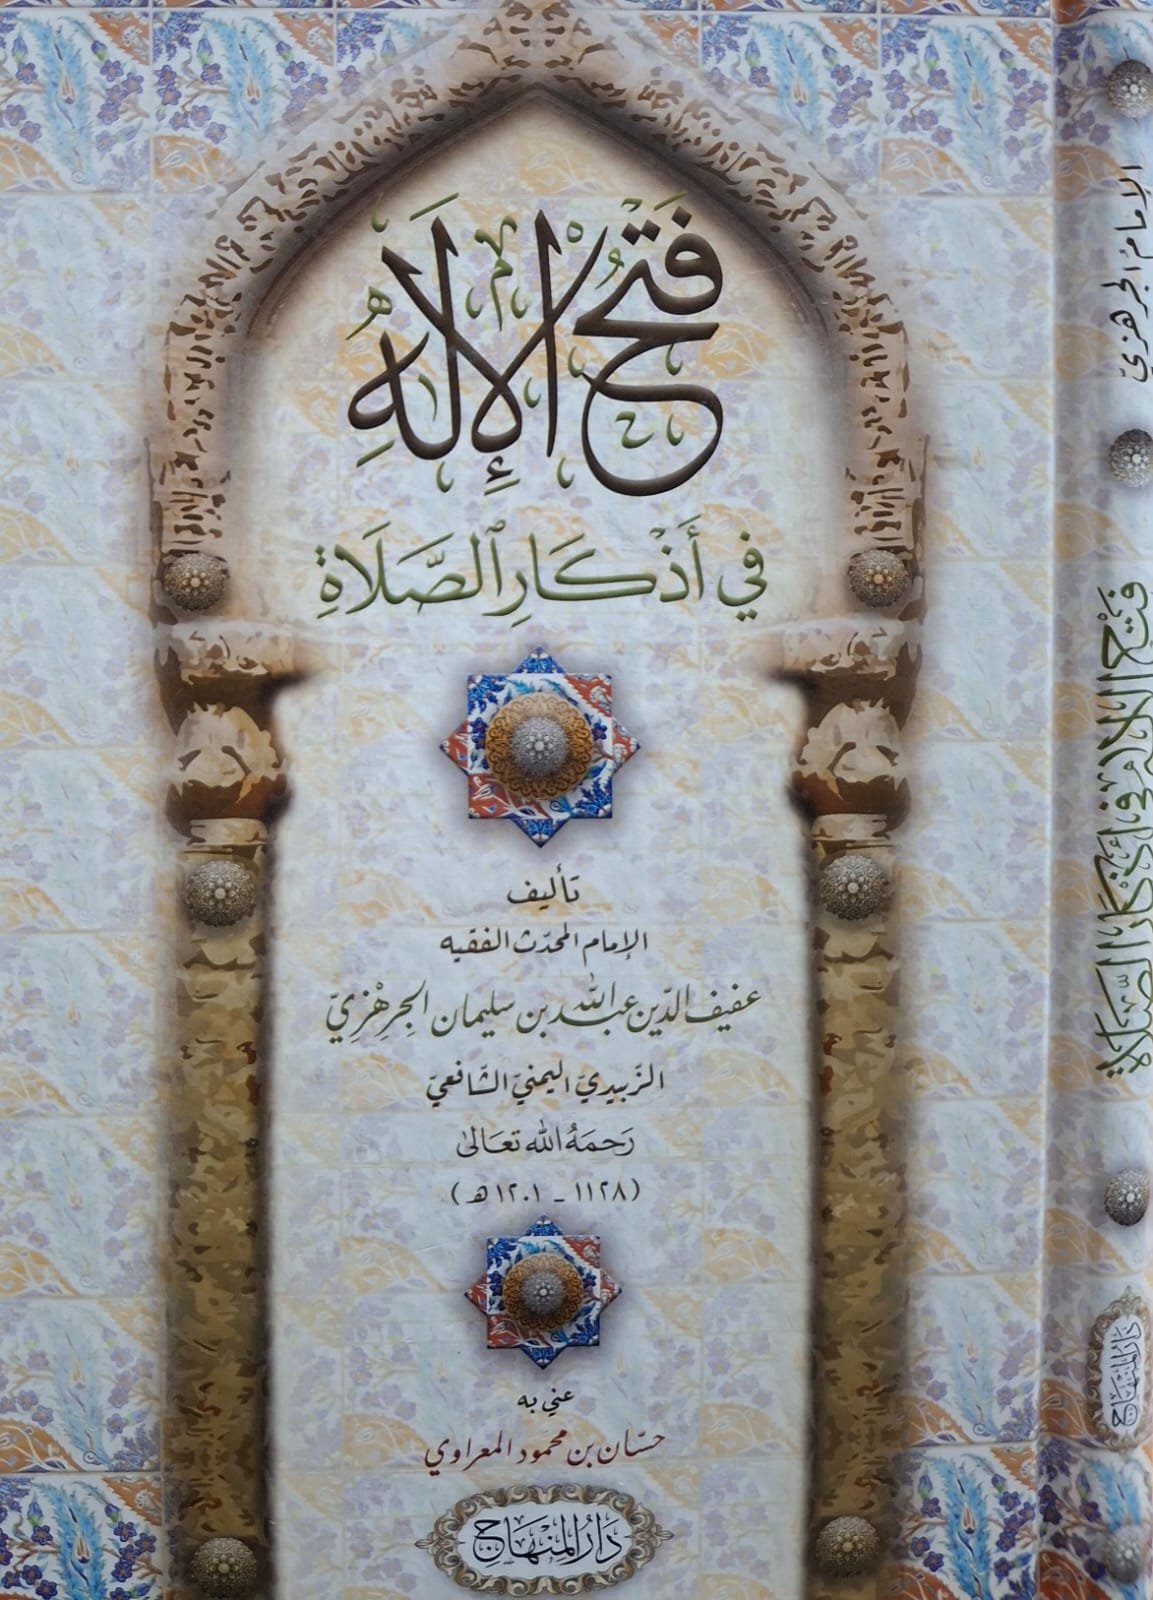 فَتْحُ الإِلَهِ
في أَذْكَارِ الصَّلَاةِ
تأليف
الإمام المحدّث الفقيه
عفيف الدّين عبد الله بن سليمان الجرهزيّ
الزّبيديّ اليمنيّ الشّافعيّ
رَحمَهُ الله تعَالى
(١١٢٨ - ١٢٠١ هـ)
عني به
حسّان بن محمود المعراوي
دَارُ المِنْهَاج
الإمام الجرهزيّ
فَتْح الإله في أذكار الصَّلاة
دَارُ المِنْهَاج